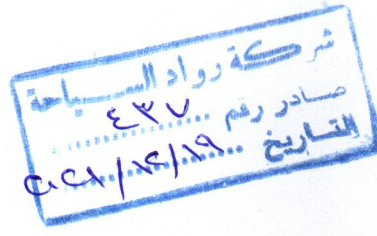 شركة رواد السياحة
صادر رقم ٤٣٧
التاريخ ٢٠٢١/١٢/١٩